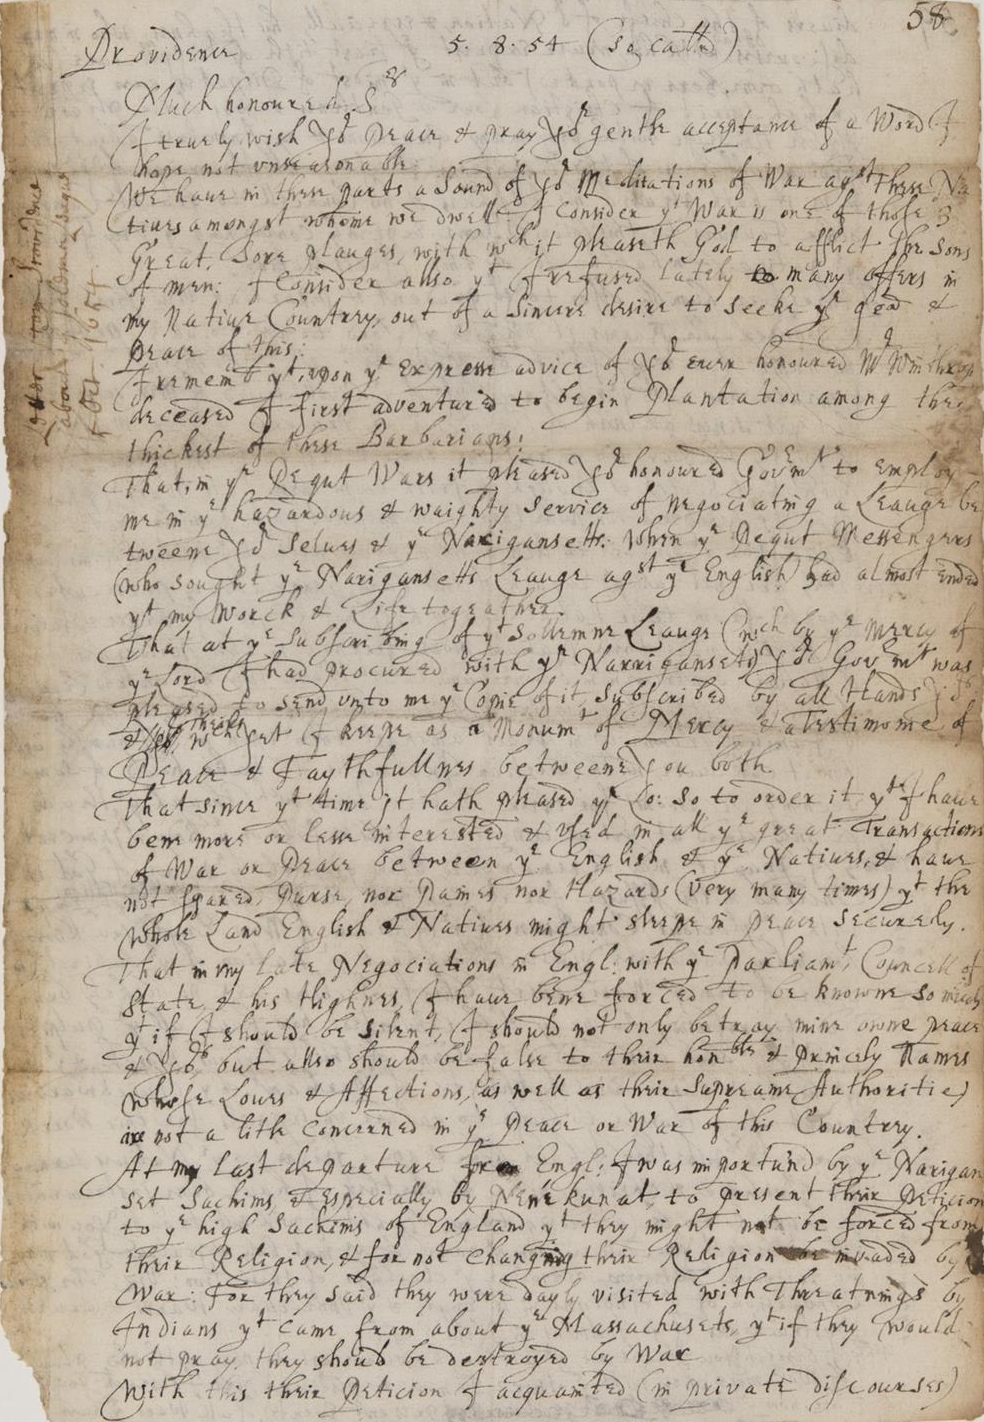 58
Providence 5. 8. 54 (so calld)
Much honoured Srs
I truely wish yor peace & pray yor gentle acceptance of a Word I
hope not unseasonable.
We have in these parts a Sound of yor Meditations of War agst these Na
tives amongst whome we dwell. I consider yt War is one of those 3
Great, Sore plauges, with wch it pleaseth God to afflict the Sons
of men: I Consider also yt I refused lately many offers in
my Native Country, out of a Sincere desire to seeke ye good &
peace of this.
I rememb yt, upon ye Expresse advice of yor ever honoured Mr Winthrop
deceased I first adventur'd to begin Plantation among the
thickest of these Barbarians.
That, in ye Pequt Wars it pleased yor honoured Govermt to employ
me in ye hazardous & waighty Service of negociating a Leauge be
tweene yor Selves & ye Narigansetts: When ye Pequt Messengers
(who sought ye Narigansetts Leauge agst ye English) had almost Ended
yt my Worck & Life togeather.
That at ye subscribing of yt Sollemne Leauge (wch by ye Mercy of
ye Lord I had procured with ye Narrigansets) yor Govermt was
pleased to send unto me ye Copie of it, subscribed by all Hands
wch yet I keepe as a Monumt & a Testimonie of
Peace & Faythfullnes betweene you both.
That since yt time it hath pleased ye Lo: so to order it yt I have
bene more or lesse interested & used in all ye great Transactions
of War or Peace between ye English & ye Natives, & have
not spared Purse, nor Paines nor Hazards (very many times) yt the
whole Land English & Natives might sleepe in peace Securely.
That in my late Negociations in Engl: with ye Parliamt, Councell of
State, & his Highnes, I have bene forced to be knowne so much
yt if I should be silent, I should not only betray mine owne peace
& yors, but allso should be false to their honble & Princely Names
whose Loves & Affections, (as well as their Supreame Authoritie)
are not a litle Concerned in ye Peace or War of this Country.
At my last departure for Engl: I was importun'd by ye Narigan
set Sachims & Especially by Nenekunat, to present their Peticion
to ye high Sachims of England yt they might not be forced from
their Religion, & for not Changing their Religion be invaded by
War: For they said they were dayly visited with Threatnings by
Indians yt came from about ye Massachusets, yt if they would
not pray, they should be destroyed by War
With this their Peticion I acquainted (in private discourses)